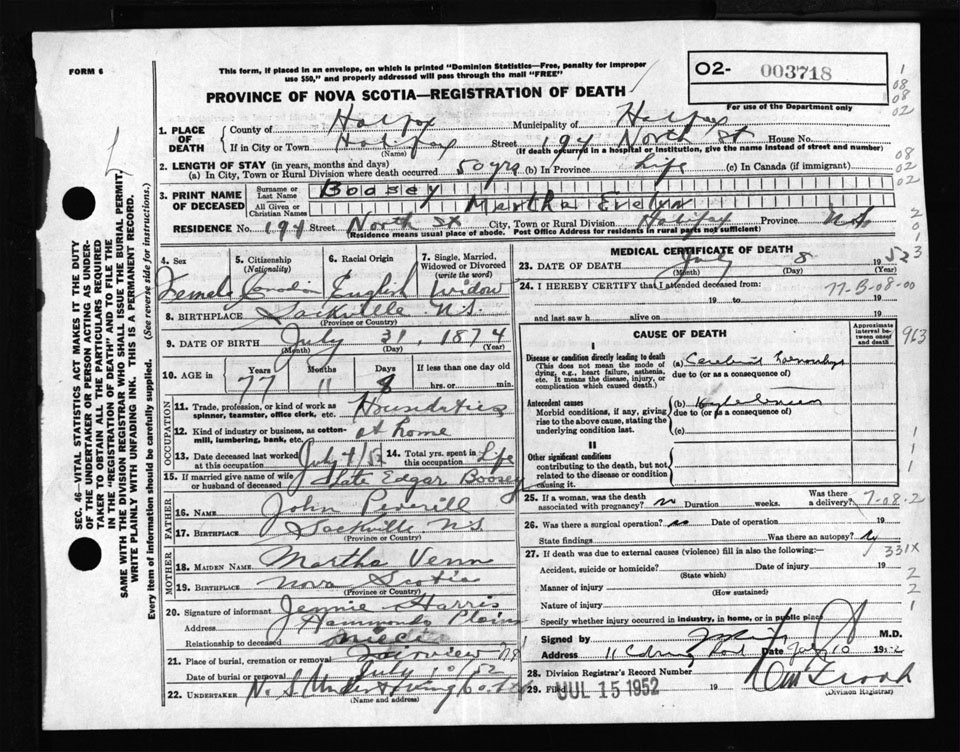 FORM 6
This form, if placed in an envelope, on which is printed "Dominion Statistics—Free, penalty for improper
use $50," and properly addressed will pass through the mail "FREE"
O2- 003718
For use of the Department only
PROVINCE OF NOVA SCOTIA—REGISTRATION OF DEATH
1. PLACE OF DEATH
County of Halifax Municipality of Halifax
If in City or Town Halifax Street 194 North St House No.
(Name) (If death occurred in a hospital or institution, give the name instead of street and number)
2. LENGTH OF STAY (in years, months and days)
(a) In City, Town or Rural Division where death occurred 50 yrs (b) In Province Life (c) In Canada (if immigrant)
3. PRINT NAME OF DECEASED
Surname or Last Name Boosey
All Given or Christian Names Martha Evelyn
RESIDENCE No. 194 Street North St City, Town or Rural Division Halifax Province N.S.
(Residence means usual place of abode. Post Office Address for residents in rural parts not sufficient)
4. Sex 5. Citizenship (Nationality) 6. Racial Origin 7. Single, Married, Widowed or Divorced (write the word)
Female Canadian English Widow
8. BIRTHPLACE Sackville N.S.
(Province or Country)
9. DATE OF BIRTH July 31, 1874
(Month) (Day) (Year)
10. AGE in Years Months Days If less than one day old
77 11 8 hrs. or min.
OCCUPATION
11. Trade, profession, or kind of work as spinner, teamster, office clerk, etc. Houseduties
12. Kind of industry or business, as cotton-mill, lumbering, bank, etc. at home
13. Date deceased last worked at this occupation July 4/52 14. Total yrs. spent in this occupation Life
15. If married give name of wife or husband of deceased State Edgar Boosey
FATHER
16. NAME John
17. BIRTHPLACE Sackville N.S.
(Province or Country)
MOTHER
18. MAIDEN NAME Martha Venn
19. BIRTHPLACE Nova Scotia
(Province or Country)
20. Signature of informant Jennie Harris
Address Hammonds Plains
Relationship to deceased niece
21. Place of burial, cremation or removal Fairview NS
Date of burial or removal July 10/52
22. UNDERTAKER N.S. Undertaking Co
(Name and Address)
MEDICAL CERTIFICATE OF DEATH
23. DATE OF DEATH July 8 1952
(Month) (Day) (Year)
24. I HEREBY CERTIFY that I attended deceased from
19 to 19
and last saw h alive on 19
77-B-08-00
CAUSE OF DEATH
Approximate interval between onset and death
963
I
Disease or condition directly leading to death (a) Cerebral
(This does not mean the mode of dying, e.g., heart failure, asthenia, etc. It means the disease, injury, or complication which caused death.)
due to (or as a consequence of)
Antecedent causes (b)
Morbid conditions, if any, giving rise to the above cause, stating the underlying condition last.
due to (or as a consequence of)
(c)
II
Other significant conditions contributing to the death, but not related to the disease or condition causing it.
25. If a woman, was the death associated with pregnancy? no Duration weeks. Was there a delivery?
7-08-2
26. Was there a surgical operation? no Date of operation 19
State findings Was there an autopsy?
331X
27. If death was due to external causes (violence) fill in also the following:—
Accident, suicide or homicide? Date of injury 19
(State which)
Manner of injury
(How sustained)
Nature of injury
Specify whether injury occurred in industry, in home, or in public place
Signed by M.D.
Address Date July 10 1952
28. Division Registrar's Record Number
29. Filed JUL 15 1952 19
(Division Registrar)
SEC. 46—VITAL STATISTICS ACT MAKES IT THE DUTY
OF THE UNDERTAKER OR PERSON ACTING AS UNDER-
TAKER TO OBTAIN ALL THE PARTICULARS REQUIRED
IN THE "REGISTRATION OF DEATH" AND TO FILE THE
SAME WITH THE DIVISION REGISTRAR WHO SHALL ISSUE THE BURIAL PERMIT.
WRITE PLAINLY WITH UNFADING INK. THIS IS A PERMANENT RECORD.
Every item of information should be carefully supplied. (See reverse side for instructions.)